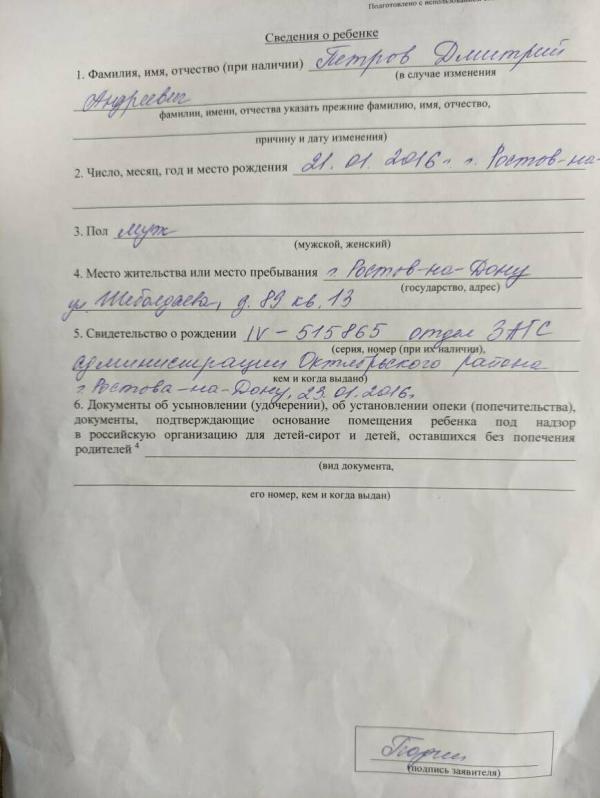 Подготовлено с использованием
Сведения о ребенке
1. Фамилия, имя, отчество (при наличии) Петров Дмитрий
(в случае изменения
Андреевич
фамилии, имени, отчества указать прежние фамилию, имя, отчество,
причину и дату изменения)
2. Число, месяц, год и место рождения 21.01.2016 г. г. Ростов-на-
3. Пол муж
(мужской, женский)
4. Место жительства или место пребывания г Ростов-на-Дону
(государство, адрес)
ул Шеболдаева, д. 89 кв. 13
5. Свидетельство о рождении IV - 515865 отдел ЗАГС
(серия, номер (при их наличии),
администрации Октябрьского района
кем и когда выдано)
г. Ростова-на-Дону, 23.01.2016г
6. Документы об усыновлении (удочерении), об установлении опеки (попечительства),
документы, подтверждающие основание помещения ребенка под надзор
в российскую организацию для детей-сирот и детей, оставшихся без попечения
родителей 4
(вид документа,
его номер, кем и когда выдан)
(подпись заявителя)